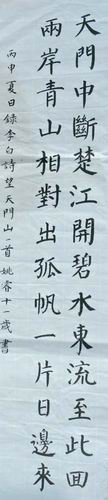 天門中斷楚江開碧水東流至此回
兩岸青山相對出孤帆一片日邊來
丙申夏日錄李白詩望天門山一首姚睿十一歲書